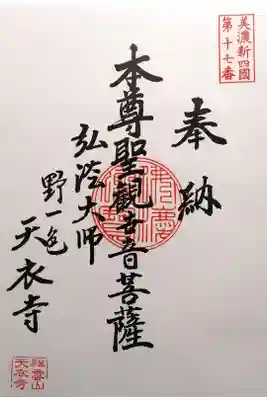 美濃新四國
第十七番
奉納
本尊聖観世音菩薩
弘法大師
野一色
天衣寺
天衣寺